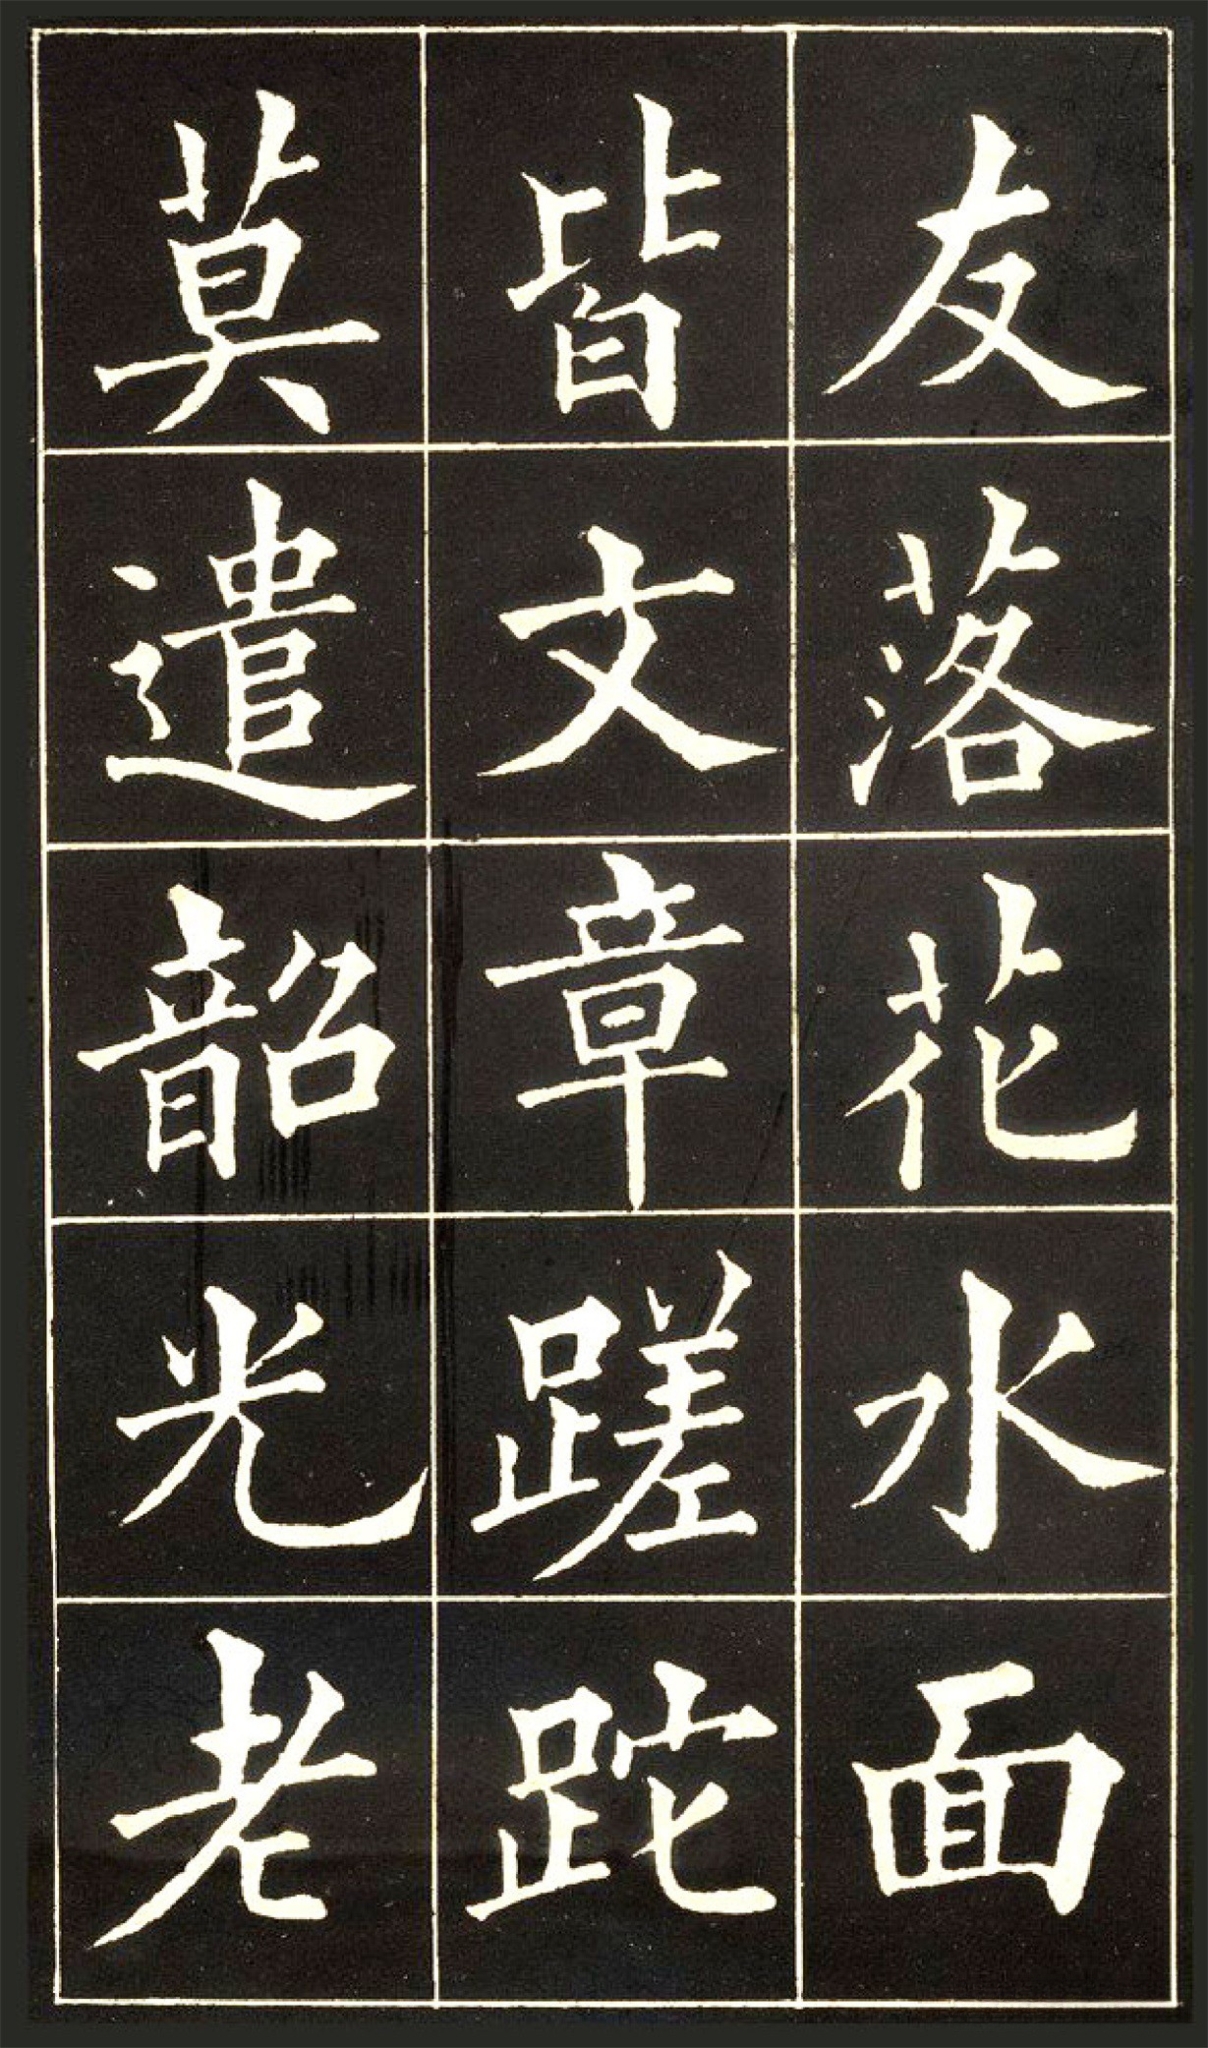 友落花水面
皆文章蹉跎
莫遣韶光老